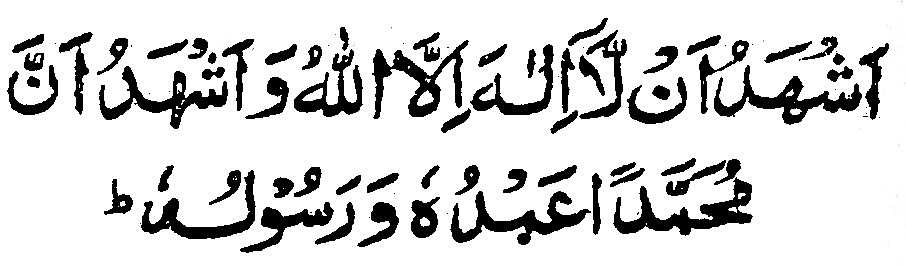 اَشْهَدُ اَنْ لَّاۤ اِلٰهَ اِلَّا اللهُ وَ اَشْهَدُ اَنَّ
مُحَمَّدًا عَبْدُهٗ وَ رَسُوْلُهٗ ؕ